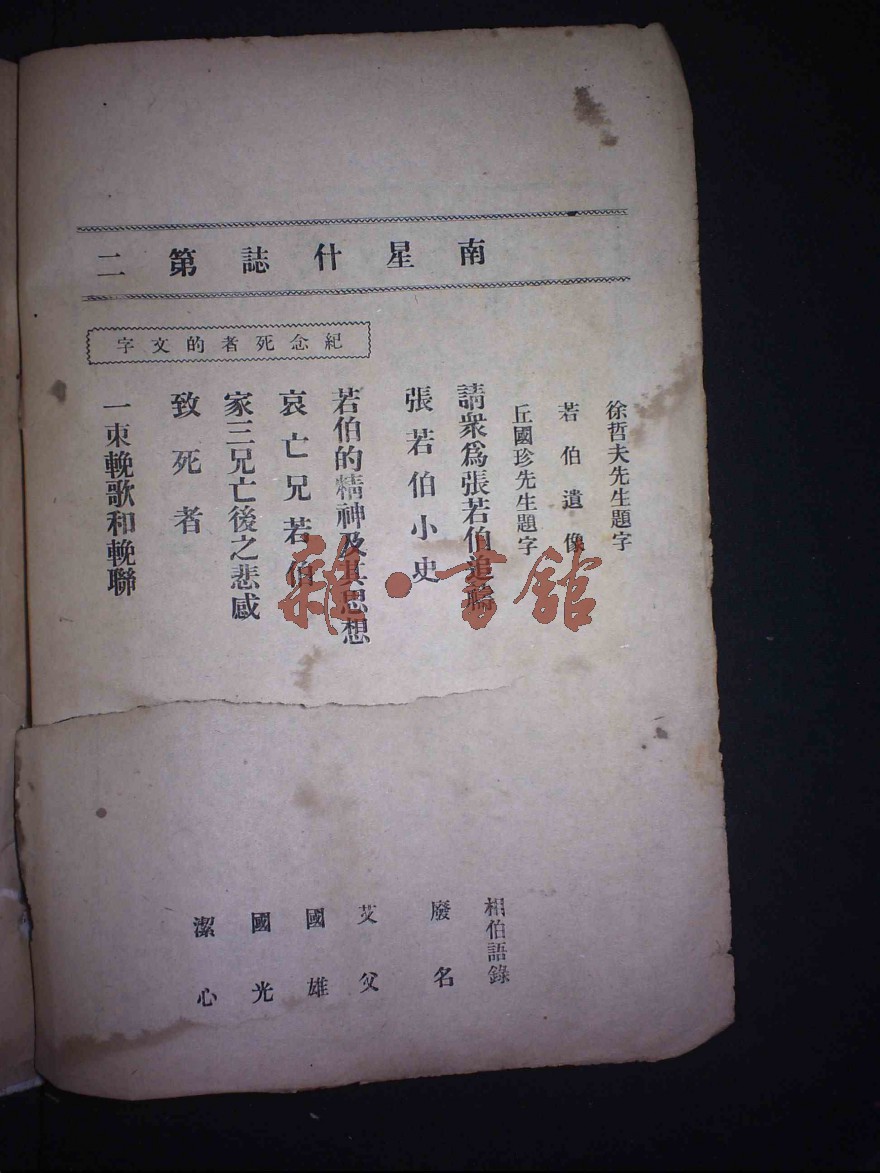 南星什誌第二
紀念死者的文字
徐哲夫先生題字
若伯遺像
丘國珍先生題字
請衆爲張若伯追禱 相伯語錄
張若伯小史 廢名
若伯的精神及其思想 艾父
哀亡兄若伯 國雄
家三兄亡後之悲感 國光
致死者 潔心
一束輓歌和輓聯
雜·書館